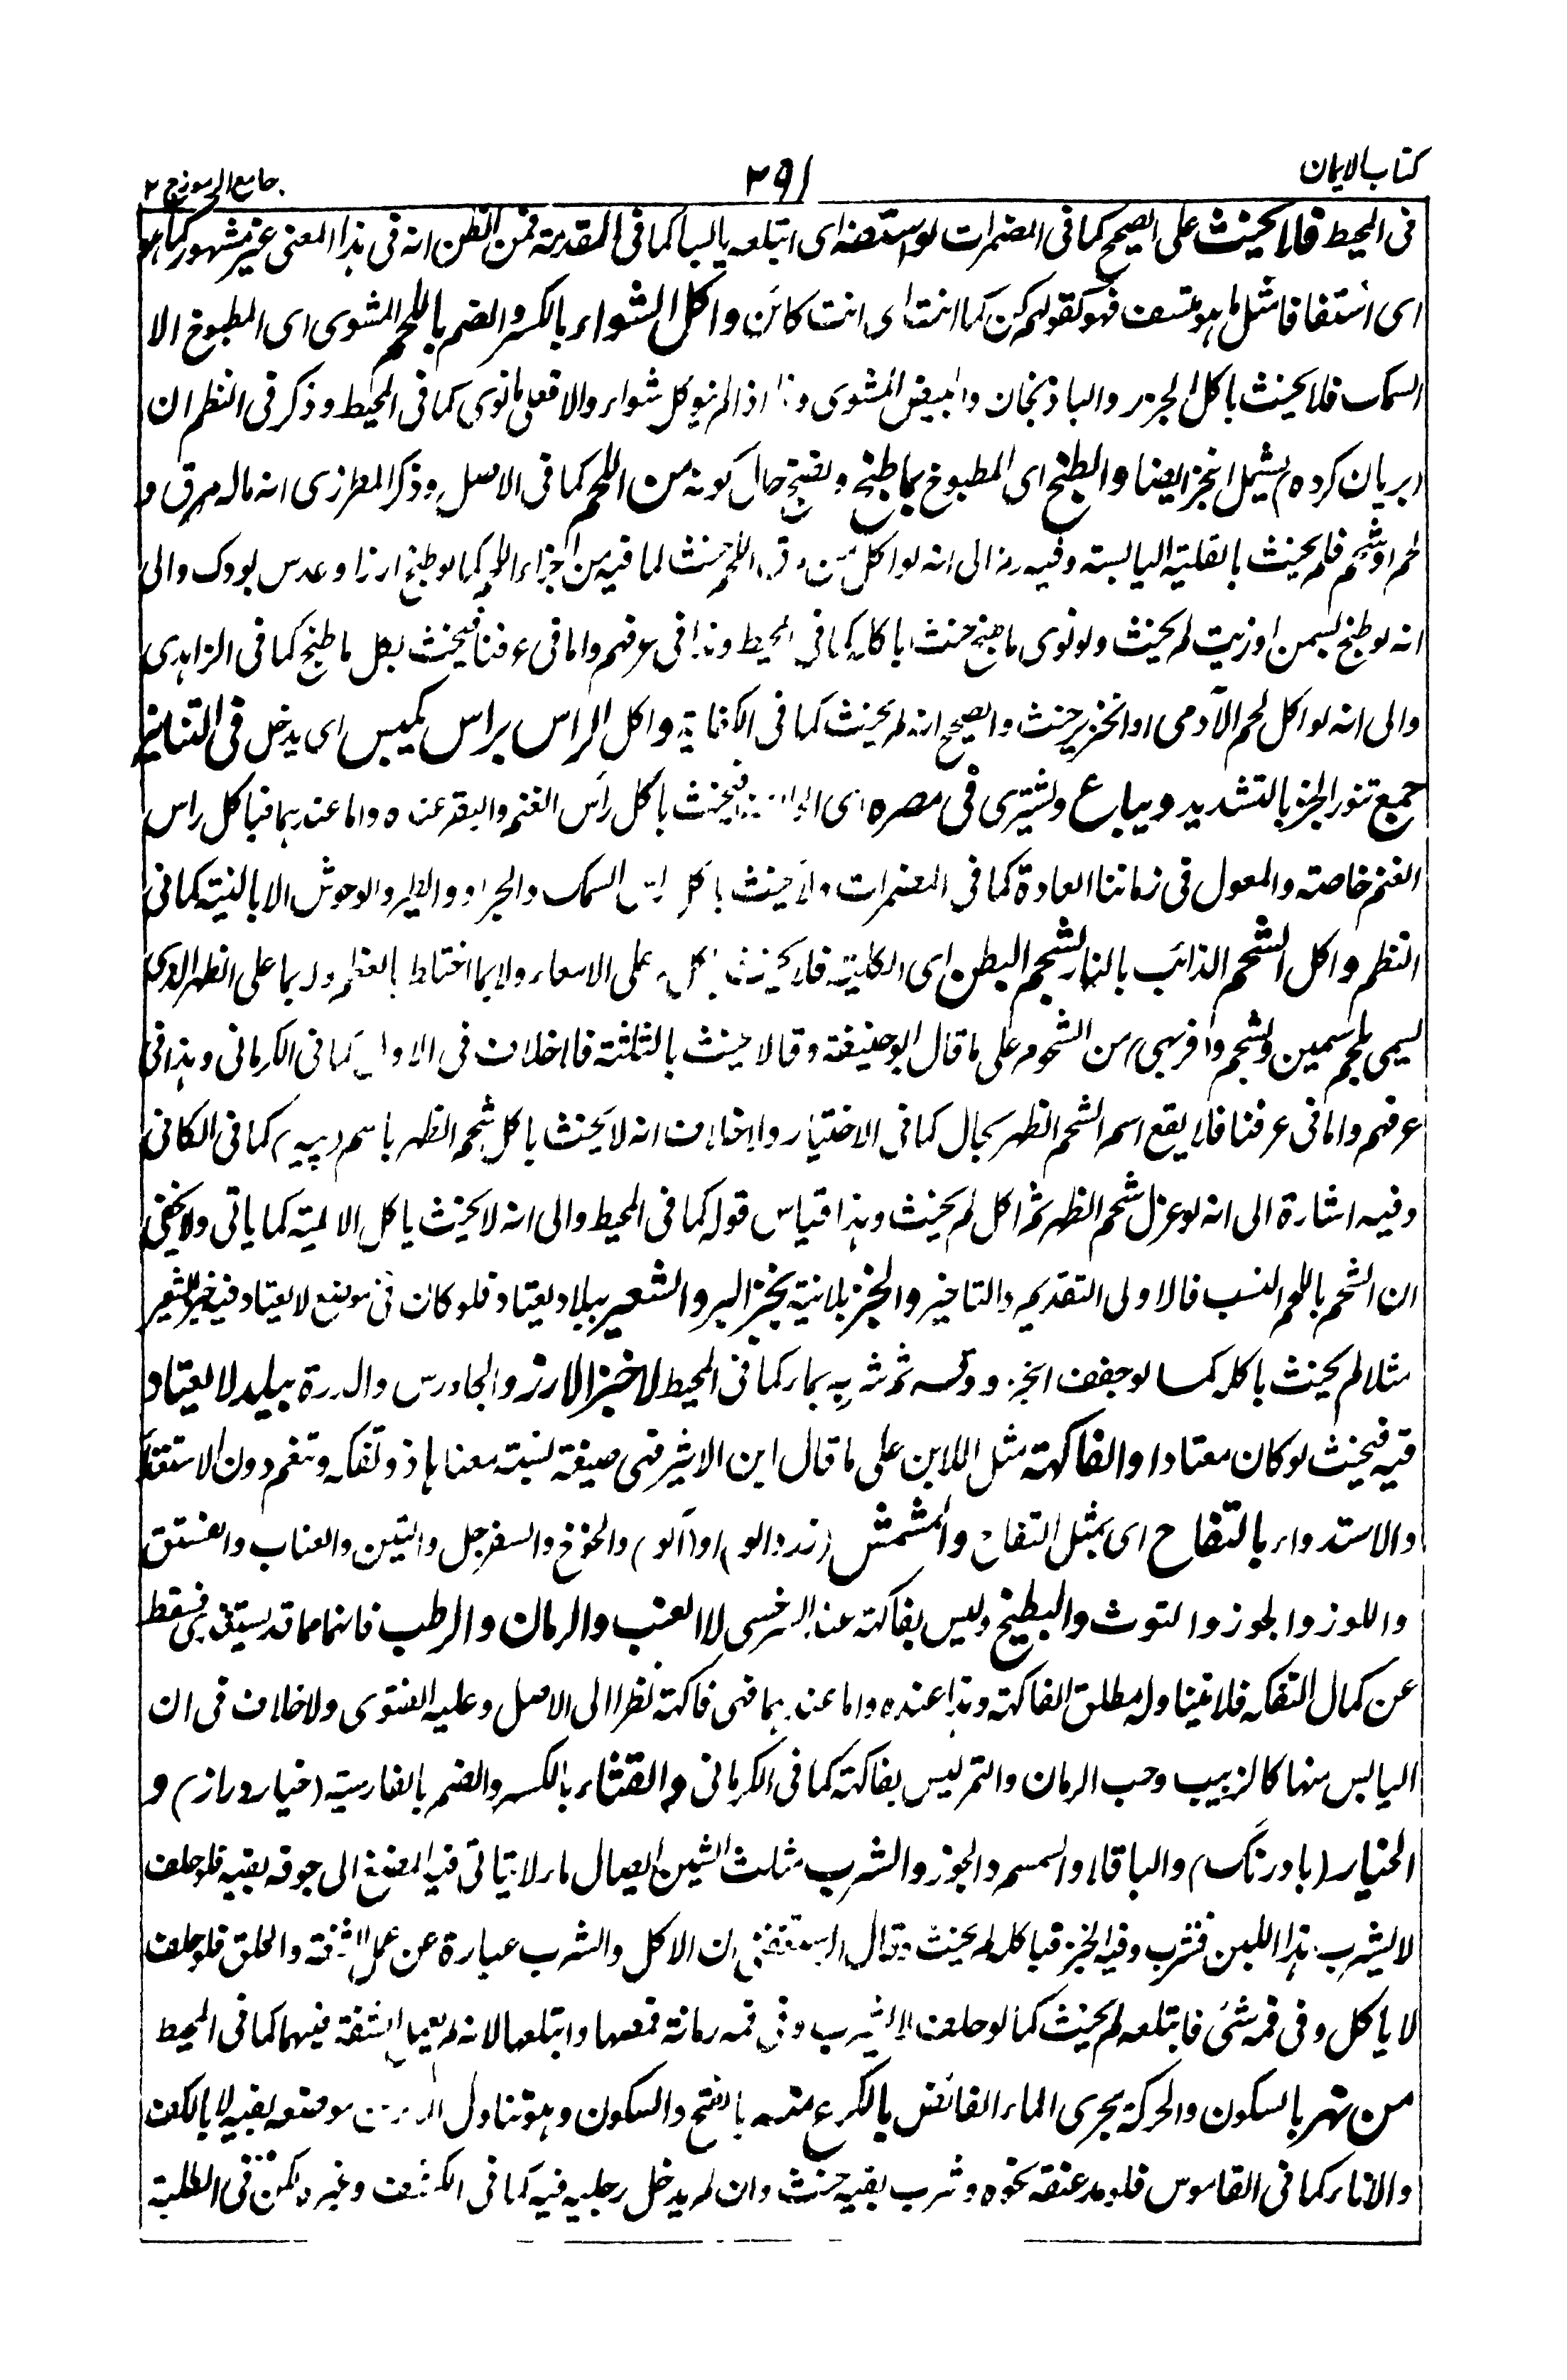 كتاب الايمان
٣٩١
جامع الرموز ج ٢
فى المحيط فلا يحنث على الصحيح كما فى المضمرات لو استفه اى ابتلعه يابسا كما فى المقدمة فمن الظن انه فى هذا المعنى غير مشهور كما هو
اى استفافا مثل ما هو مستف فهو كقولهم كن كما انت اى انت كائن واكل الشواء بالكسر والضم باللحم المشوى اى المطبوخ الا
السمك فلا يحنث باكل الجزر والباذنجان والبيض المشوى وهذا اذا لم ينو كل شواء والا فعلى ما نوى كما فى المحيط وذكر فى النظم ان
(بريان كرده) يشمل الخبز ايضا والطبخ اى المطبوخ بما طبخ ويفتح حال كونه من اللحم كما فى الاصل وذكر المطرزى انه ماله مرق و
لحم او شحم فلم يحنث بالقلية اليابسة وفيه رمز الى انه لو اكل من مرق اللحم حنث لما فيه من اجزاء اللحم كما لو طبخ ارزا وعدس بودك والى
انه لو طبخ بسمن او زيت لم يحنث ولو نوى ما طبخ حنث باكله كما فى المحيط وهذا فى عرفهم واما فى عرفنا فيحنث بكل ما طبخ كما فى الزاهدى
والى انه لو اكل لحم الآدمى او الخنزير حنث والصحيح انه لم يحنث كما فى الكفاية واكل الراس براس يكبس اى يدخل فى التنانير
جمع تنور الخبز بالتشديد ويباع ويشترى فى مصره اى فيحنث باكل رأس الغنم والبقر عنده واما عندهما فباكل راس
الغنم خاصة والمعول فى زماننا العادة كما فى المضمرات ولا يحنث باكل راس السمك والجراد والطير والوحوش الا بالنية كما فى
النظم واكل الشحم الذائب بالنار بشحم البطن اى الكلية فلا يحنث بما على الامعاء ولا بما اختلط بالعظم ولا بما على الظهر الذى
يسمى بلحم سمين وبشحم و(فربهى) من الشحوم على ما قال ابو حنيفة وقالا يحنث بالثلثة فلا خلاف فى الاول كما فى الكرمانى وهذا فى
عرفهم واما فى عرفنا فلا يقع اسم الشحم الظهر بحال كما فى الاختيار ولا خلاف انه لا يحنث باكل شحم الظهر باسم (پيه) كما فى الكافى
وفيه اشارة الى انه لو عزل شحم الظهر ثم اكل لم يحنث وهذا قياس قوله كما فى المحيط والى انه لا يحنث باكل الالية كما ياتى ولا يخفى
ان الشحم باللحم انسب فالاولى التقديم والتاخير والخبز بلا نية بخبز البر والشعير ببلاد يعتاد فلو كان فى موضع لا يعتاد فيه خبز الشعير
مثلا لم يحنث باكله كما لو جفف الخبز ودقه ثم شربه بماء كما فى المحيط لا خبز الارز والجاورس والذرة ببلد لا يعتاد
فيه فيحنث لو كان معتادا والفاكهة مثل اللابن على ما قال ابن الاثير فهى صيغة نسبة معناها ذو تفكه وتنعم دون الاستقتا
والاستدواء بالتفاح اى بمثل التفاح والمشمش (زردالو) او (آلو) والخوخ والسفرجل والتين والعناب والفستق
واللوز والجوز والتوث والبطيخ وليس بفاكهة عند السرخسى لا العنب والرمان والرطب فانهما مما قد يستغنى به فسقط
عن كمال التفكه فلا يتناوله مطلق الفاكهة وهذا عنده واما عندهما فهى فاكهة نظرا الى الاصل وعليه الفتوى ولا خلاف فى ان
اليابس منها كالزبيب وحب الرمان والتمر ليس بفاكهة كما فى الكرمانى والقثاء بالكسر والضم بالفارسية (خيار دراز) و
الخيار (بادرنگ) والباقلا والسمسم والجوز والشرب مثلث الشين ايصال ماء لا يتاتى فيه المضغ الى جوفه بفيه فلو حلف
لا يشرب هذا اللبن فشرب وفيه الخبز فباكله لم يحنث وقال ان الاكل والشرب عبارة عن عمل الشفة والحلق فلو حلف
لا ياكل وفى فمه شئ فابتلعه لم يحنث كما لو حلف لا يشرب وفى فمه رمانة فمصها وابتلعها لانه لم يعمل الشفة فيهما كما فى المحيط
من نهر بالسكون والحركة مجرى الماء الفائض بالكرع منه بالفتح والسكون وهو تناول الماء من موضعه بفيه لا بالكف
والاناء كما فى القاموس فلو مد عنقه نحوه وشرب بفيه حنث وان لم يدخل رجليه فيه كما فى الكشف وغيره لكن فى الطلبة